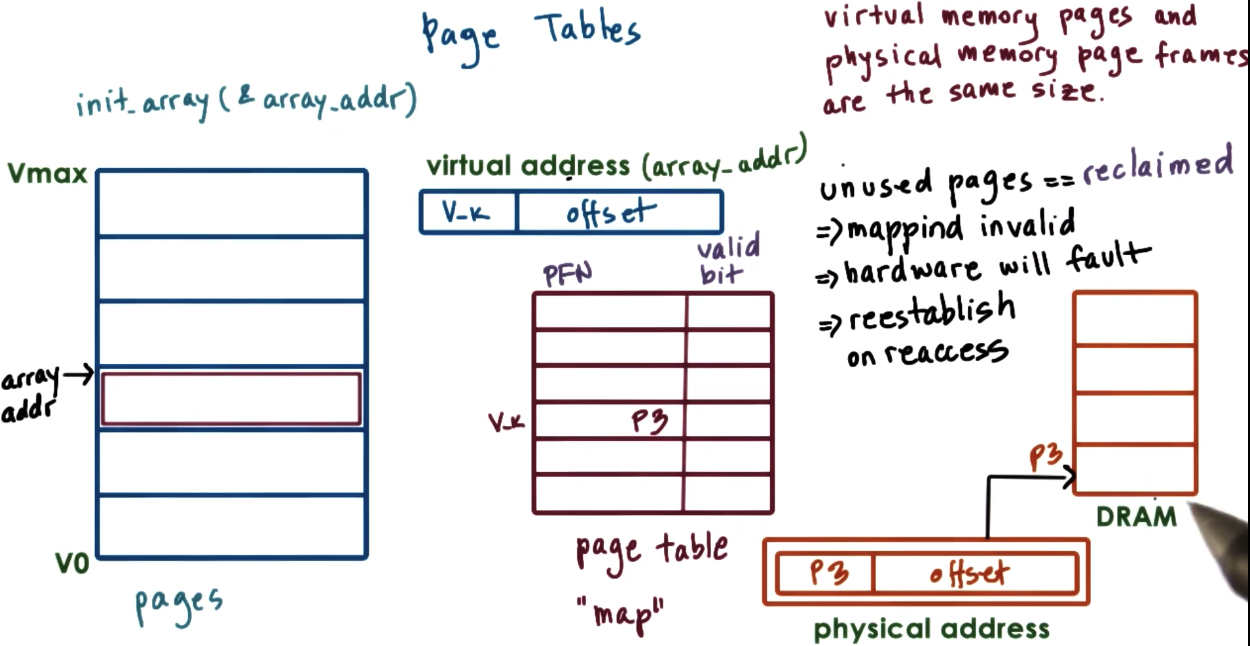 Page Tables
virtual memory pages and
physical memory page frames
are the same size.
init_array (& array_addr)
Vmax
array
addr
V0
pages
virtual address (array_addr)
V_k offset
PFN
valid
bit
V_k P3
page table
"map"
unused pages == reclaimed
=> mappind invalid
=> hardware will fault
=> reestablish
on reaccess
P3
DRAM
P3 offset
physical address